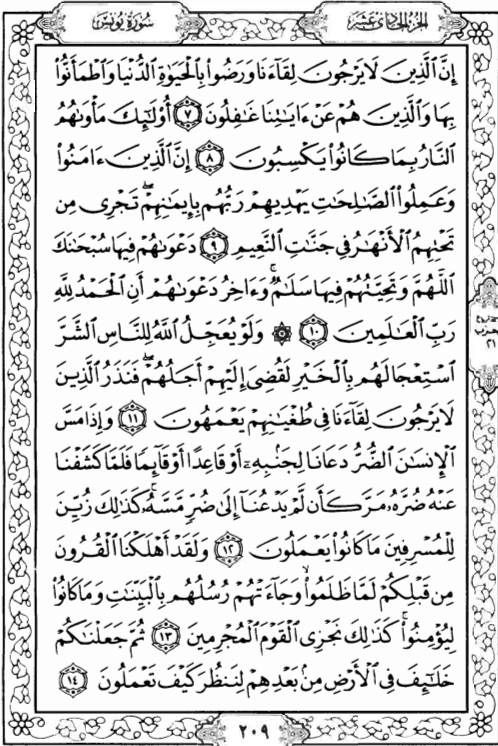 سُورَةُ يُونُسَ
الجزء الحادي عشر
إِنَّ ٱلَّذِينَ لَا يَرْجُونَ لِقَآءَنَا وَرَضُوا۟ بِٱلْحَيَوٰةِ ٱلدُّنْيَا وَٱطْمَأَنُّوا۟
بِهَا وَٱلَّذِينَ هُمْ عَنْ ءَايَٰتِنَا غَٰفِلُونَ ٧ أُو۟لَٰٓئِكَ مَأْوَىٰهُمُ
ٱلنَّارُ بِمَا كَانُوا۟ يَكْسِبُونَ ٨ إِنَّ ٱلَّذِينَ ءَامَنُوا۟
وَعَمِلُوا۟ ٱلصَّٰلِحَٰتِ يَهْدِيهِمْ رَبُّهُم بِإِيمَٰنِهِمْ ۖ تَجْرِى مِن
تَحْتِهِمُ ٱلْأَنْهَٰرُ فِى جَنَّٰتِ ٱلنَّعِيمِ ٩ دَعْوَىٰهُمْ فِيهَا سُبْحَٰنَكَ
ٱللَّهُمَّ وَتَحِيَّتُهُمْ فِيهَا سَلَٰمٌ ۚ وَءَاخِرُ دَعْوَىٰهُمْ أَنِ ٱلْحَمْدُ لِلَّهِ
رَبِّ ٱلْعَٰلَمِينَ ١٠ ۞ وَلَوْ يُعَجِّلُ ٱللَّهُ لِلنَّاسِ ٱلشَّرَّ
ٱسْتِعْجَالَهُم بِٱلْخَيْرِ لَقُضِىَ إِلَيْهِمْ أَجَلُهُمْ ۖ فَنَذَرُ ٱلَّذِينَ
لَا يَرْجُونَ لِقَآءَنَا فِى طُغْيَٰنِهِمْ يَعْمَهُونَ ١١ وَإِذَا مَسَّ
ٱلْإِنسَٰنَ ٱلضُّرُّ دَعَانَا لِجَنۢبِهِۦٓ أَوْ قَاعِدًا أَوْ قَآئِمًا فَلَمَّا كَشَفْنَا
عَنْهُ ضُرَّهُۥ مَرَّ كَأَن لَّمْ يَدْعُنَآ إِلَىٰ ضُرٍّ مَّسَّهُۥ ۚ كَذَٰلِكَ زُيِّنَ
لِلْمُسْرِفِينَ مَا كَانُوا۟ يَعْمَلُونَ ١٢ وَلَقَدْ أَهْلَكْنَا ٱلْقُرُونَ
مِن قَبْلِكُمْ لَمَّا ظَلَمُوا۟ ۙ وَجَآءَتْهُمْ رُسُلُهُم بِٱلْبَيِّنَٰتِ وَمَا كَانُوا۟
لِيُؤْمِنُوا۟ ۚ كَذَٰلِكَ نَجْزِى ٱلْقَوْمَ ٱلْمُجْرِمِينَ ١٣ ثُمَّ جَعَلْنَٰكُمْ
خَلَٰٓئِفَ فِى ٱلْأَرْضِ مِنۢ بَعْدِهِمْ لِنَنظُرَ كَيْفَ تَعْمَلُونَ ١٤
الحزب
٢١
٢٠٩